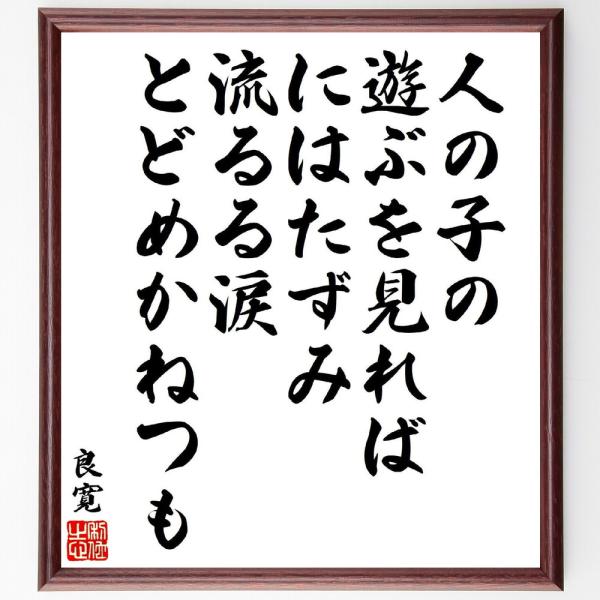 人の子の
遊ぶを見れば
にはたずみ
流るる涙
とどめかねつも
良寛